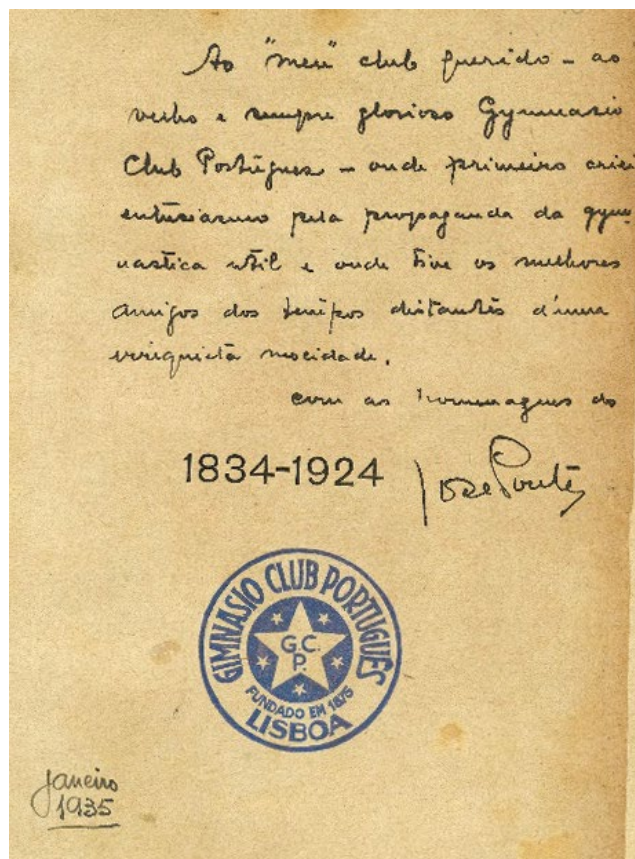 Ao "meu" club querido - ao
velho e sempre glorioso Gymnasio
Club Português - onde primeiro criei
entusiasmo pela propaganda da gym
nastica util e onde tive os melhores
amigos dos tempos distantes d'uma
irriquieta mocidade.
com as homenagens do
1834-1924
José Pontes
GIMNASIO CLUB PORTUGUÊS
G.C.
P.
FUNDADO EM 1875
LISBOA
Janeiro
1935